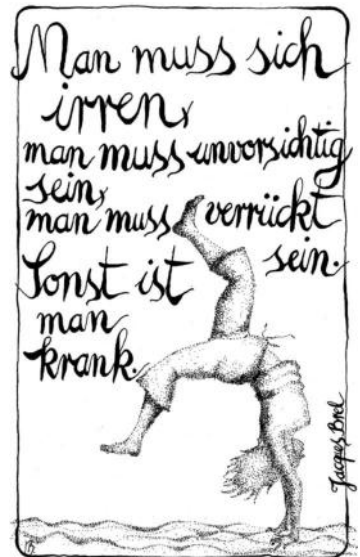 Man muss sich
irren,
man muss unvorsichtig
sein,
man muss verrückt
sein.
Sonst ist
man
krank.
Jacques Brel
16